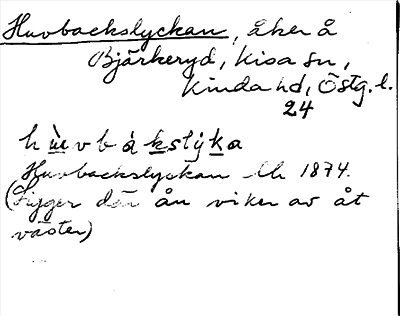 Huvbackslyckan, åker å
Bjärkeryd, Kisa sn,
Kinda hd, Östg. l.
24
h ùe v b á k s l ý k a
Huvbackslyckan Ek 1874.
(Ligger där ån viker av åt
väster)